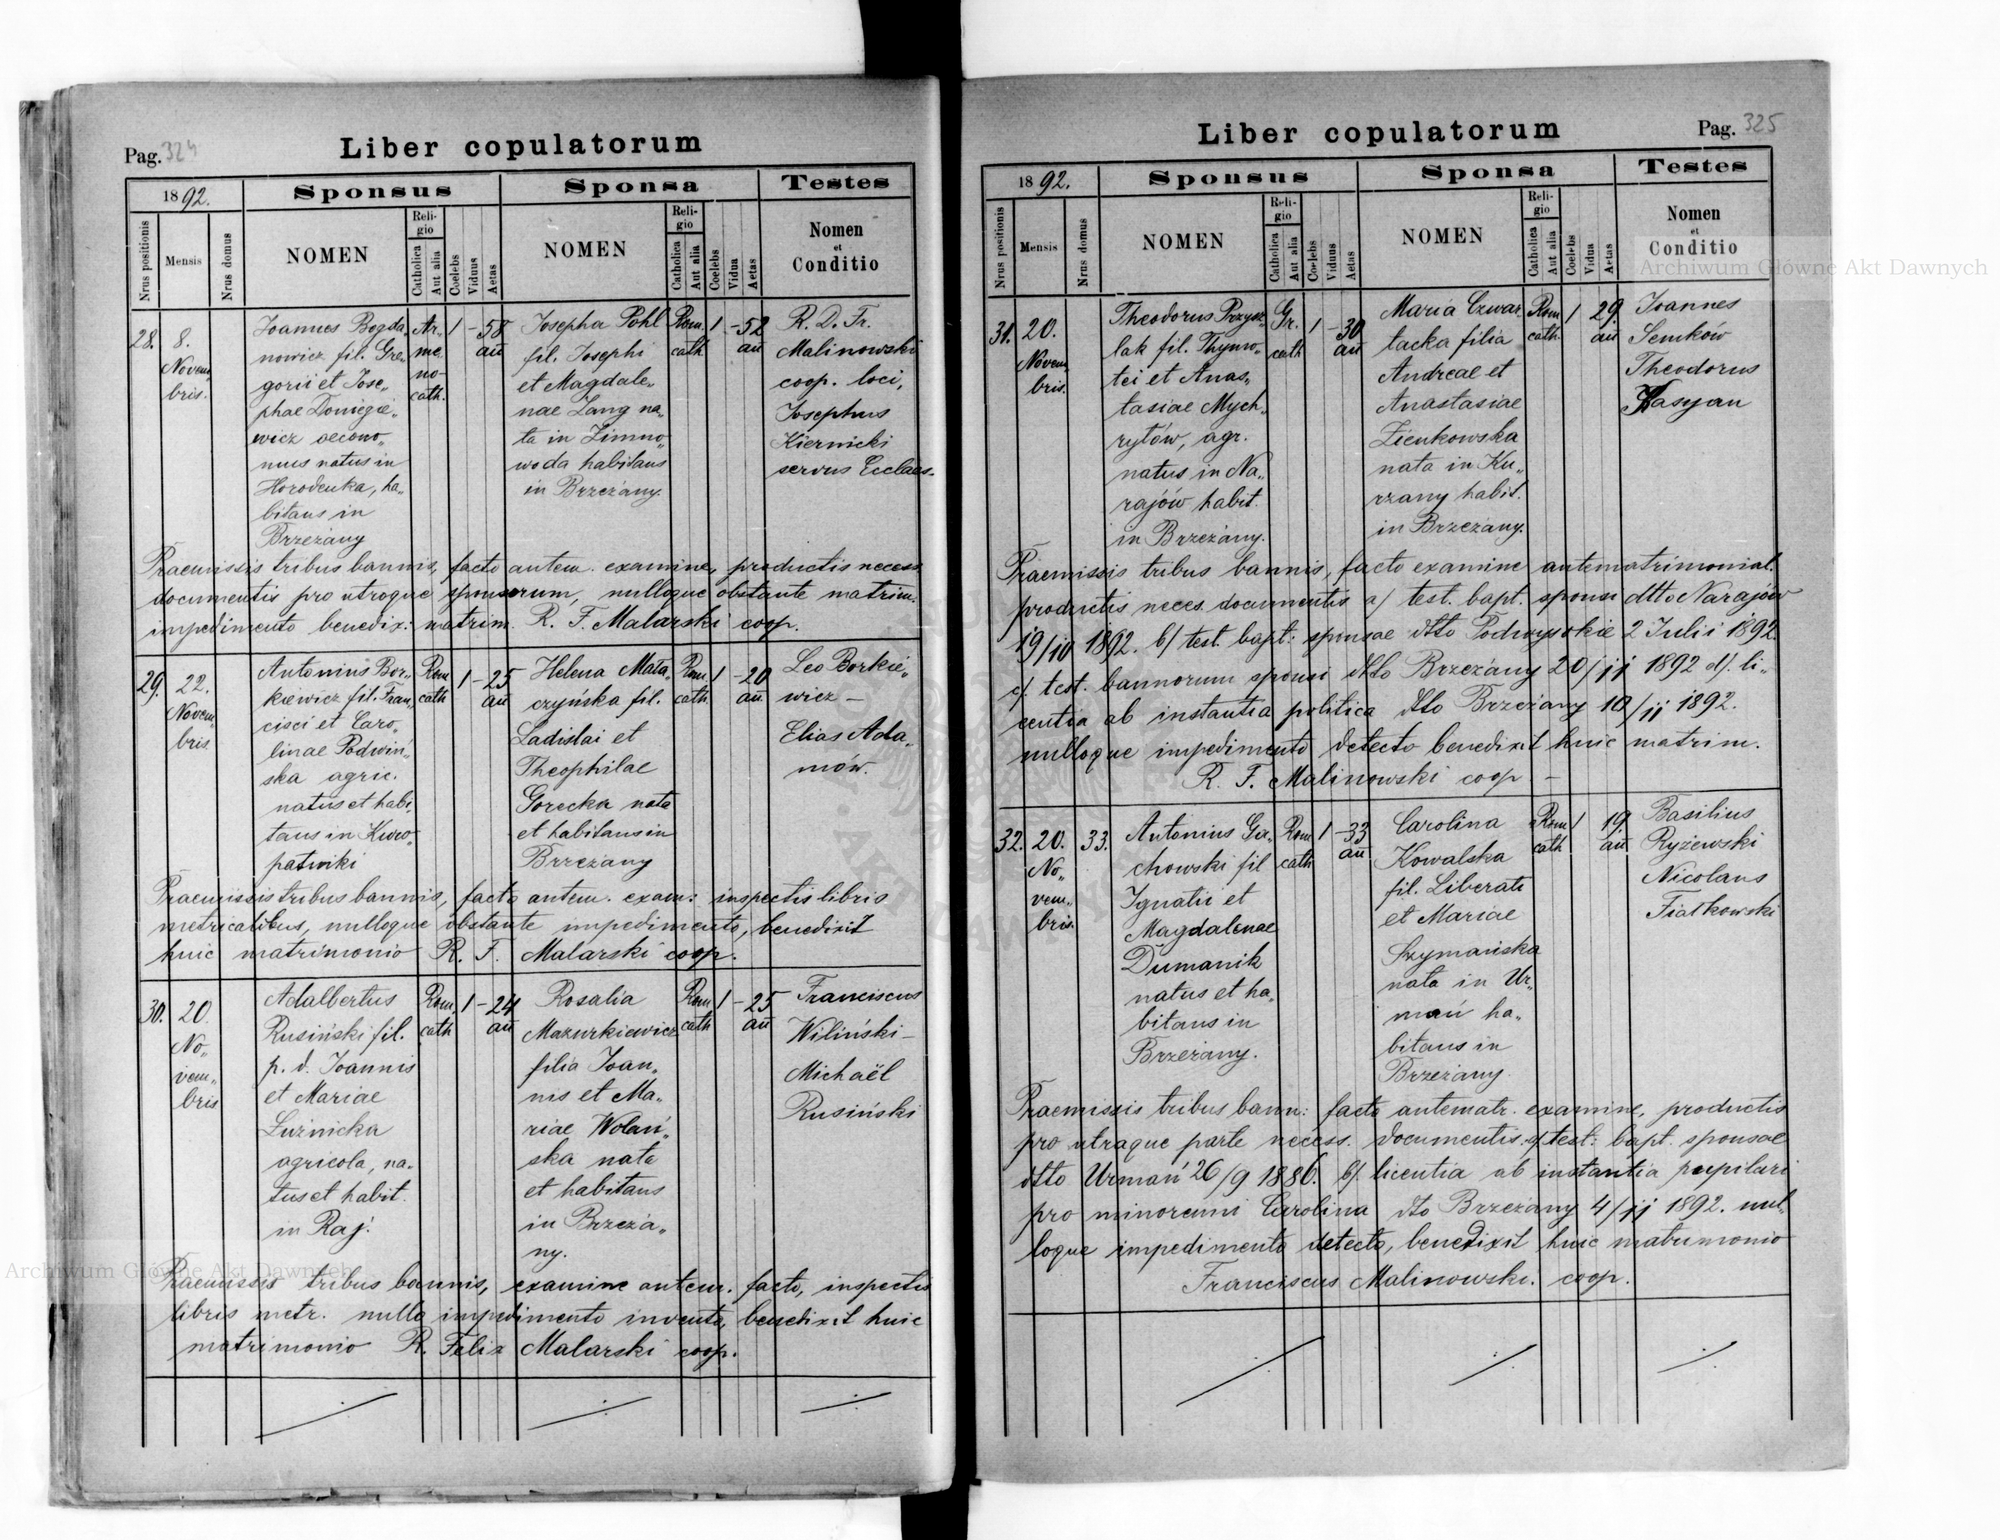 Pag. 324
Liber copulatorum
1892.
Sponsus
Sponsa
Testes
Nrus positionis
Mensis
Nrus domus
NOMEN
Religio
Catholica
Aut alia
Coelebs
Viduus
Aetas
NOMEN
Religio
Catholica
Aut alia
Coelebs
Vidua
Aetas
Nomen
et
Conditio
28.
8.
Novem„
bris.
Joannes Bogda„
nowicz fil. Gre„
gorii et Jose„
phae Doniegie„
wicz oecono„
mus natus in
Horodenka, ha„
bitans in
Brzeżany
Ar.
me
no-
cath.
1
-58
an̄
Josepha Pohl
fil. Josephi
et Magdale„
nae Lang na„
ta in Zimno„
woda habitans
in Brzeżany.
Rom.
cath
1
-52
an̄
R. D. Fr.
Malinowski
coop. loci,
Josephus
Kiernicki
servus Ecclaes.
Praemissis tribus bannis, facto antem. examine, productis necess
documentis pro utroque sponsorum, nulloque obstante matrim.
impedimento benedix: matrim. R. F. Malarski coop.
29.
22.
Novem„
bris.
Antonius Bor„
kiewicz fil. Fran„
cisci et Caro„
linae Podwiń„
ska agric.
natus et habi„
tans in Kuro„
patniki
Rom
cath
1
-25
an̄
Helena Mata„
czyńska fil.
Ladislai et
Theophilae
Gorecka nata
et habitans in
Brzeżany
Rom.
cath.
1
-20
an̄
Leo Borkie„
wicz –
Elias Ada„
mów.
Praemissis tribus bannis, facto antem. exam: inspectis libris
metricalibus, nulloque obstante impedimento, benedixit
huic matrimonio R. F. Malarski coop.
30.
20.
No„
vem„
bris
Adalbertus
Rusiński fil.
p. d. Joannis
et Mariae
Luźnicka
agricola, na„
tus et habit.
in Raj.
Rom,
cath
1
-24
an̄
Rosalia
Mazurkiewicz
filia Joan„
nis et Ma„
riae Wolań„
ska nata
et habitans
in Brzeża„
ny.
Rom
cath
1
-25
an̄
Franciscus
Wiliński –
Michaël
Rusiński
Praemissis tribus bannis, examine antem. facto, inspectis
libris metr. nullo impedimento invento, benedixit huic
matrimonio R. Felix Malarski coop.
Liber copulatorum
Pag. 325
1892.
Sponsus
Sponsa
Testes
Nrus positionis
Mensis
Nrus domus
NOMEN
Religio
Catholica
Aut alia
Coelebs
Viduus
Aetas
NOMEN
Religio
Catholica
Aut alia
Coelebs
Vidua
Aetas
Nomen
et
Conditio
31.
20.
Novem„
bris.
Theodorus Przysz„
lak fil. Thymo„
tei et Anas„
tasiae Mych„
rytów, agr.
natus in Na„
rajów habit.
in Brzeżany.
Gr.
cath
1
-30
an̄
Maria Czwar„
tacka filia
Andreae et
Anastasiae
Zienkowska
nata in Ku„
rzany habit.
in Brzeżany.
Rom
cath.
1
29.
an̄
Joannes
Semków
Theodorus
Kasyan
Praemissis tribus bannis, facto examine antematrimonial.
productis neces. documentis a/ test. bapt. sponsi dtto Narajów
19/10 1892. b/ test. bapt: sponsae dtto Podwysokie 2 Julii 1892.
c/. test. bannorum sponsi dtto Brzeżany 20/11 1892 d/. li„
centia ab instantia politica dtto Brzeżany 10/11 1892.
nulloque impedimento detecto benedixit huic matrim.
R. F. Malinowski coop –
32.
20.
No„
vem„
bris.
33.
Antonius Gra„
chowski fil
Ignatii et
Magdalenae
Dumanik
natus et ha„
bitans in
Brzeżany.
Rom
cath
1
-33
an̄
Carolina
Kowalska
fil. Liberati
et Mariae
Szymańska
nata in Ur„
mań ha„
bitans in
Brzeżany.
Rom
cath
1
19.
an̄
Basilius
Ryżewski
Nicolaus
Fiałkowski
Praemissis tribus bann: facto antematr. examine, productis
pro utraque parte necess. documentis. a/ test: bapt. sponsae
dtto Urmań 26/9 1886. b/. licentia ab instantia pupilari
pro minorenni Carolina dto Brzeżany 4/11 1892. nul„
loque impedimento detecto, benedixit huic matrimonio
Franciscus Malinowski. coop.
Archiwum Główne Akt Dawnych
Archiwum Główne Akt Dawnych